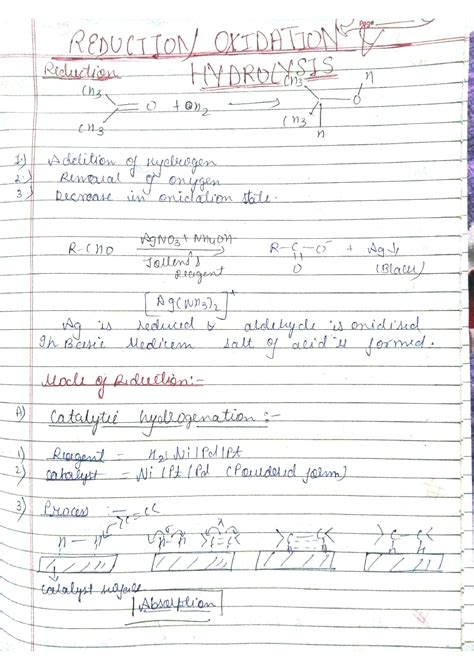 Page
REDUCTION/ OXIDATION/
HYDROLYSIS
Reduction
CH3 CH3 H
O + H2 O
CH3 CH3 H
1) Addition of hydrogen
2) Removal of oxygen
3) Decrease in oxidation state.
AgNO3 + NH4OH
R-CHO R-C-O⁻ + Ag↓
Tollen's Reagent O (Black)
[Ag(NH3)2]⁺
Ag is reduced & aldehyde is oxidised
In Basic Medium salt of acid is formed.
Mode of Reduction:-
A) Catalytic hydrogenation :-
1) Reagent - H2/Ni/Pd/Pt
2) Catalyst - Ni/Pt/Pd (Powdered form)
3) Process :-
C=C
H-H H H C=C C=C C-C
H H
Catalyst surface
Absorption